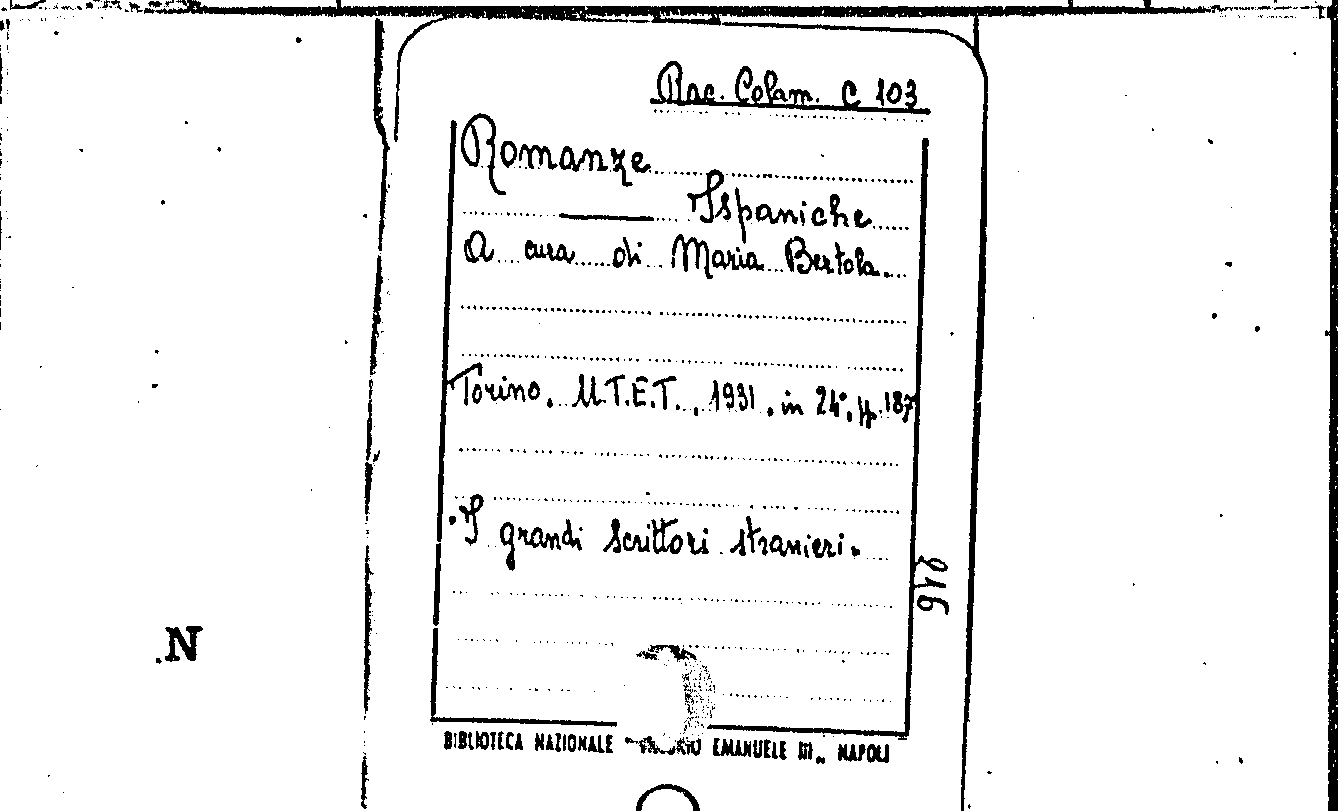 Rac. Colam. C 103
Romanze
Ispaniche
A cura di Maria Bertola.
Torino. U.T.E.T., 1931, in 24°, pp. 187
"I grandi scrittori stranieri"
916
.N
BIBLIOTECA NAZIONALE EMANUELE III„ NAPOLI